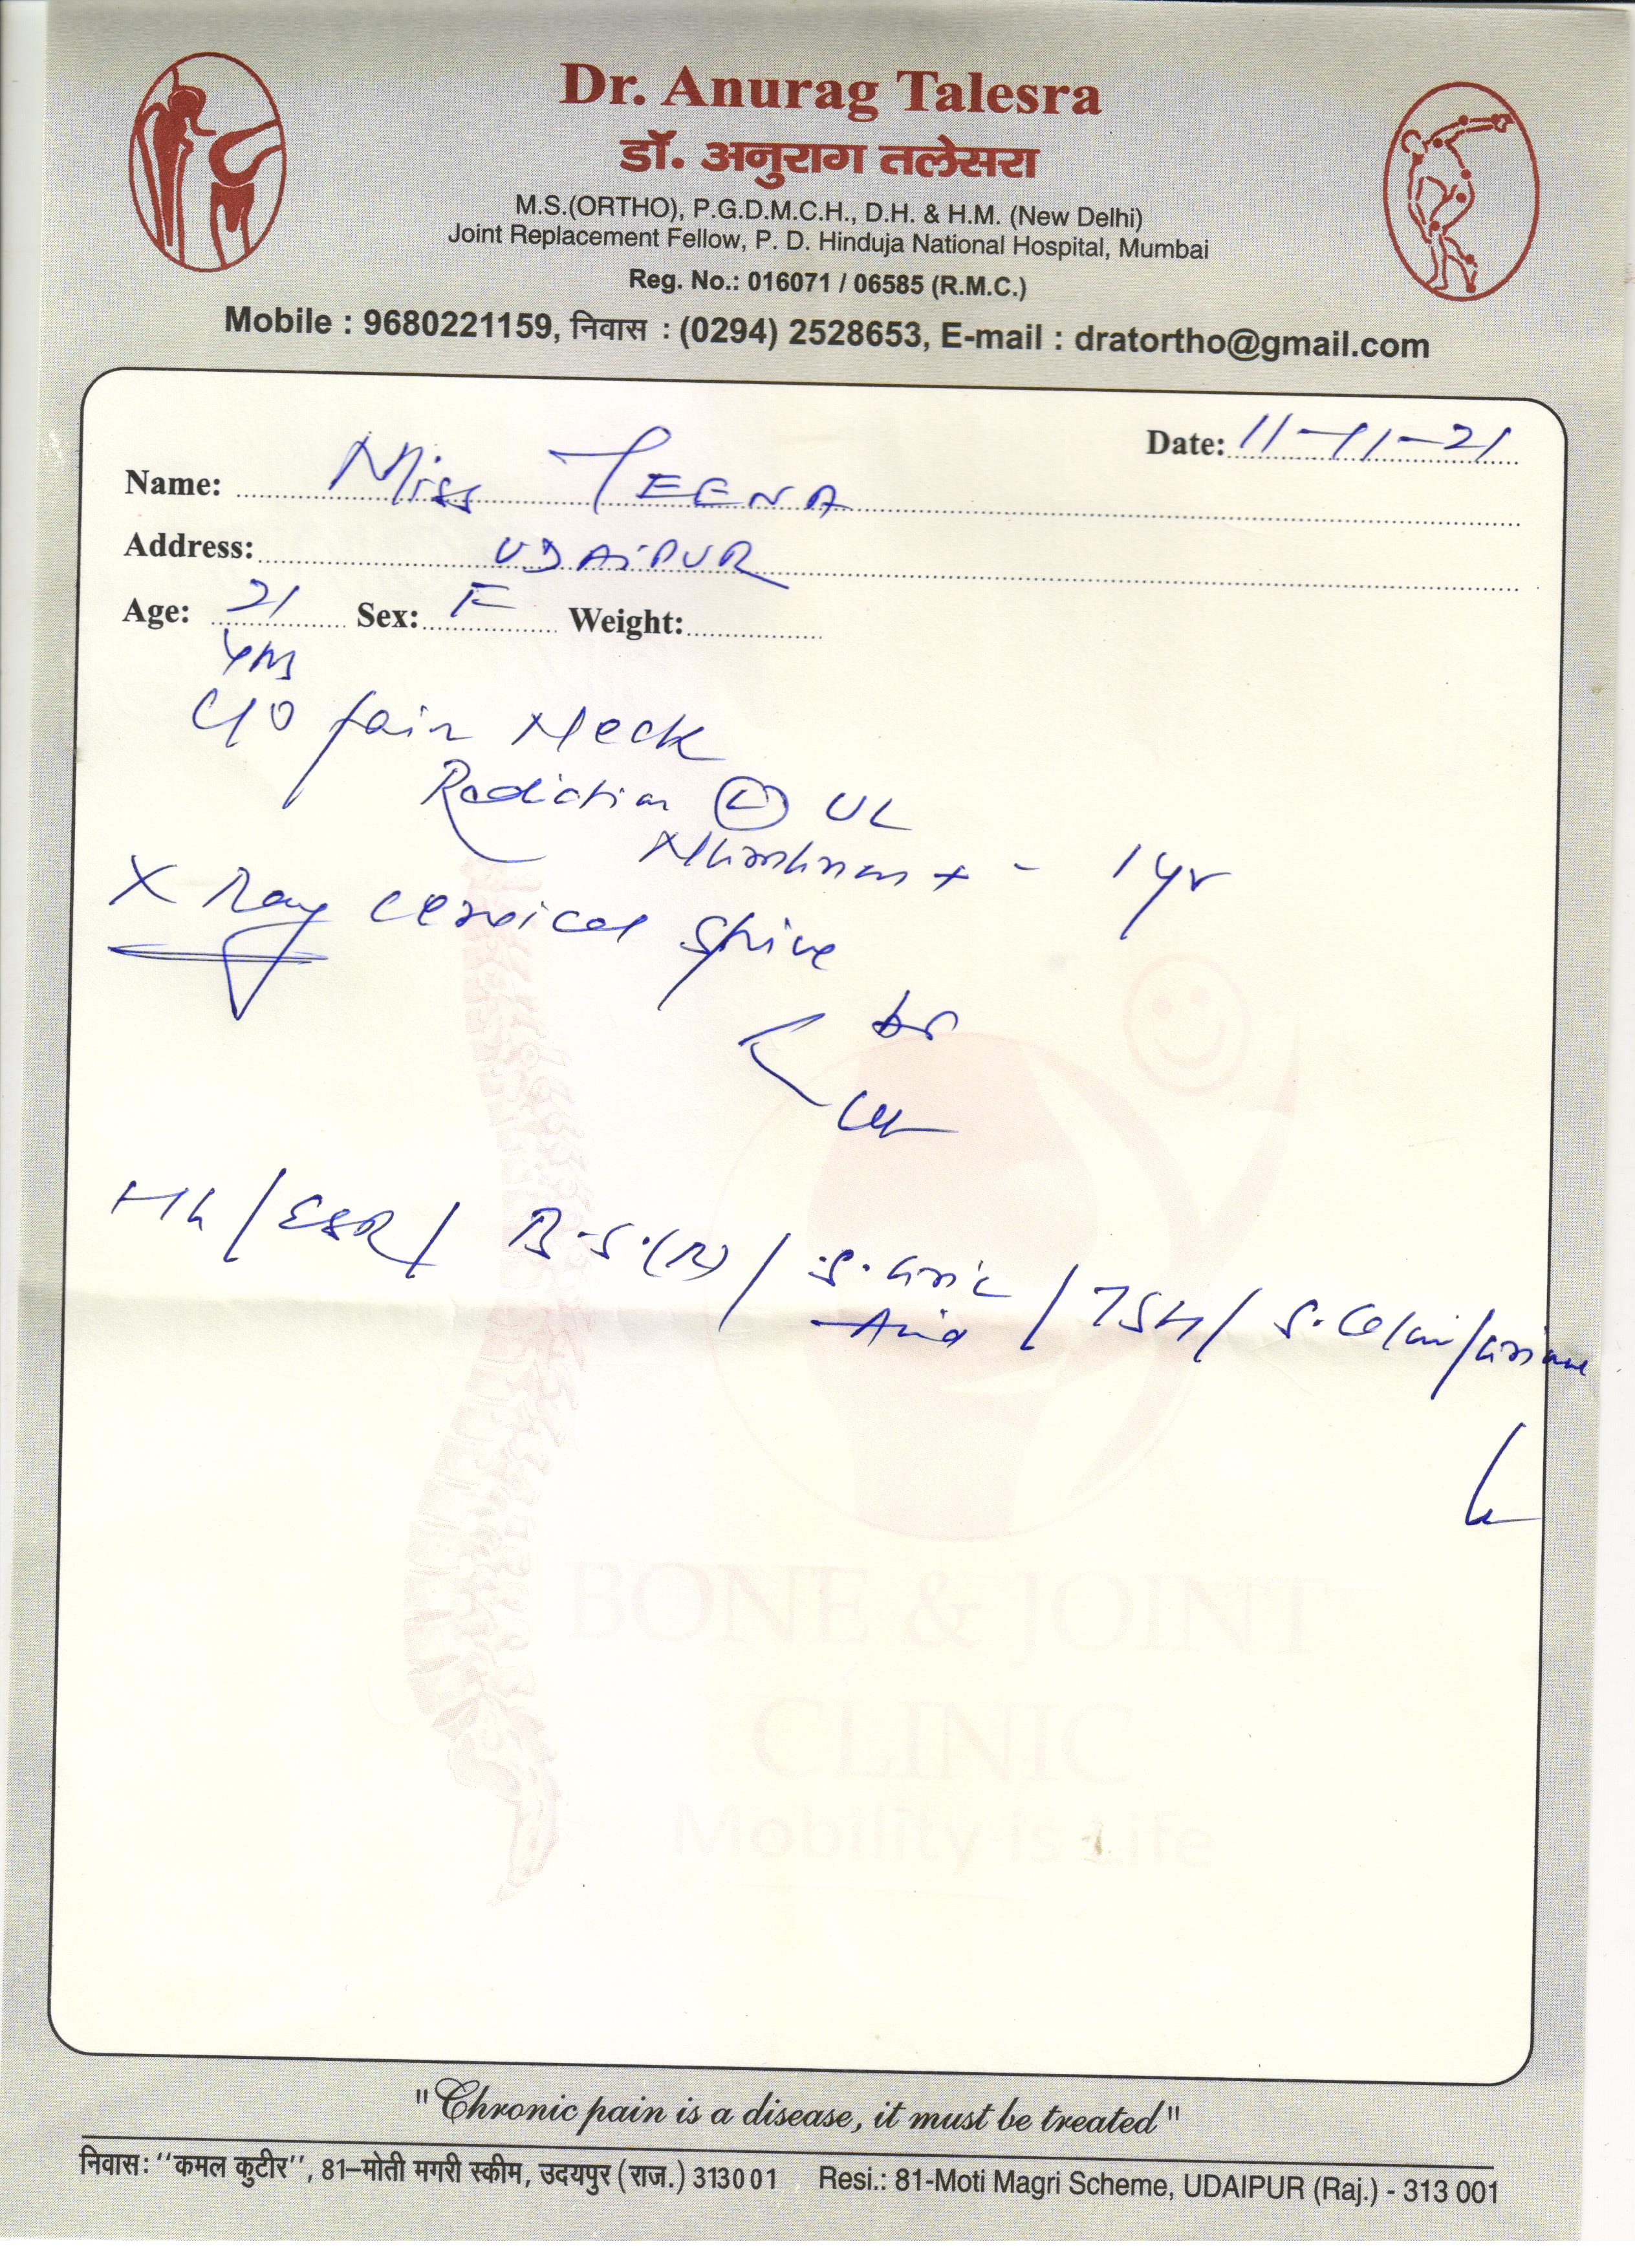 Dr. Anurag Talesra
डॉ. अनुराग तलेसरा
M.S.(ORTHO), P.G.D.M.C.H., D.H. & H.M. (New Delhi)
Joint Replacement Fellow, P. D. Hinduja National Hospital, Mumbai
Reg. No.: 016071 / 06585 (R.M.C.)
Mobile : 9680221159, निवास : (0294) 2528653, E-mail : dratortho@gmail.com
Date: 11-11-21
Name: Miss TEENA
Address: UDAIPUR
Age: 21 Sex: F Weight:
yrs
C/O pain Neck
Radiation (L) UL
+ - 1 yr
X Ray cervical spine
Hb / ESR / B.S.(R) / S. Uric / TSH / S.
Acid
BONE & JOINT
CLINIC
Mobility is Life
"Chronic pain is a disease, it must be treated"
निवास: ''कमल कुटीर'', 81–मोती मगरी स्कीम, उदयपुर (राज.) 313001 Resi.: 81-Moti Magri Scheme, UDAIPUR (Raj.) - 313 001